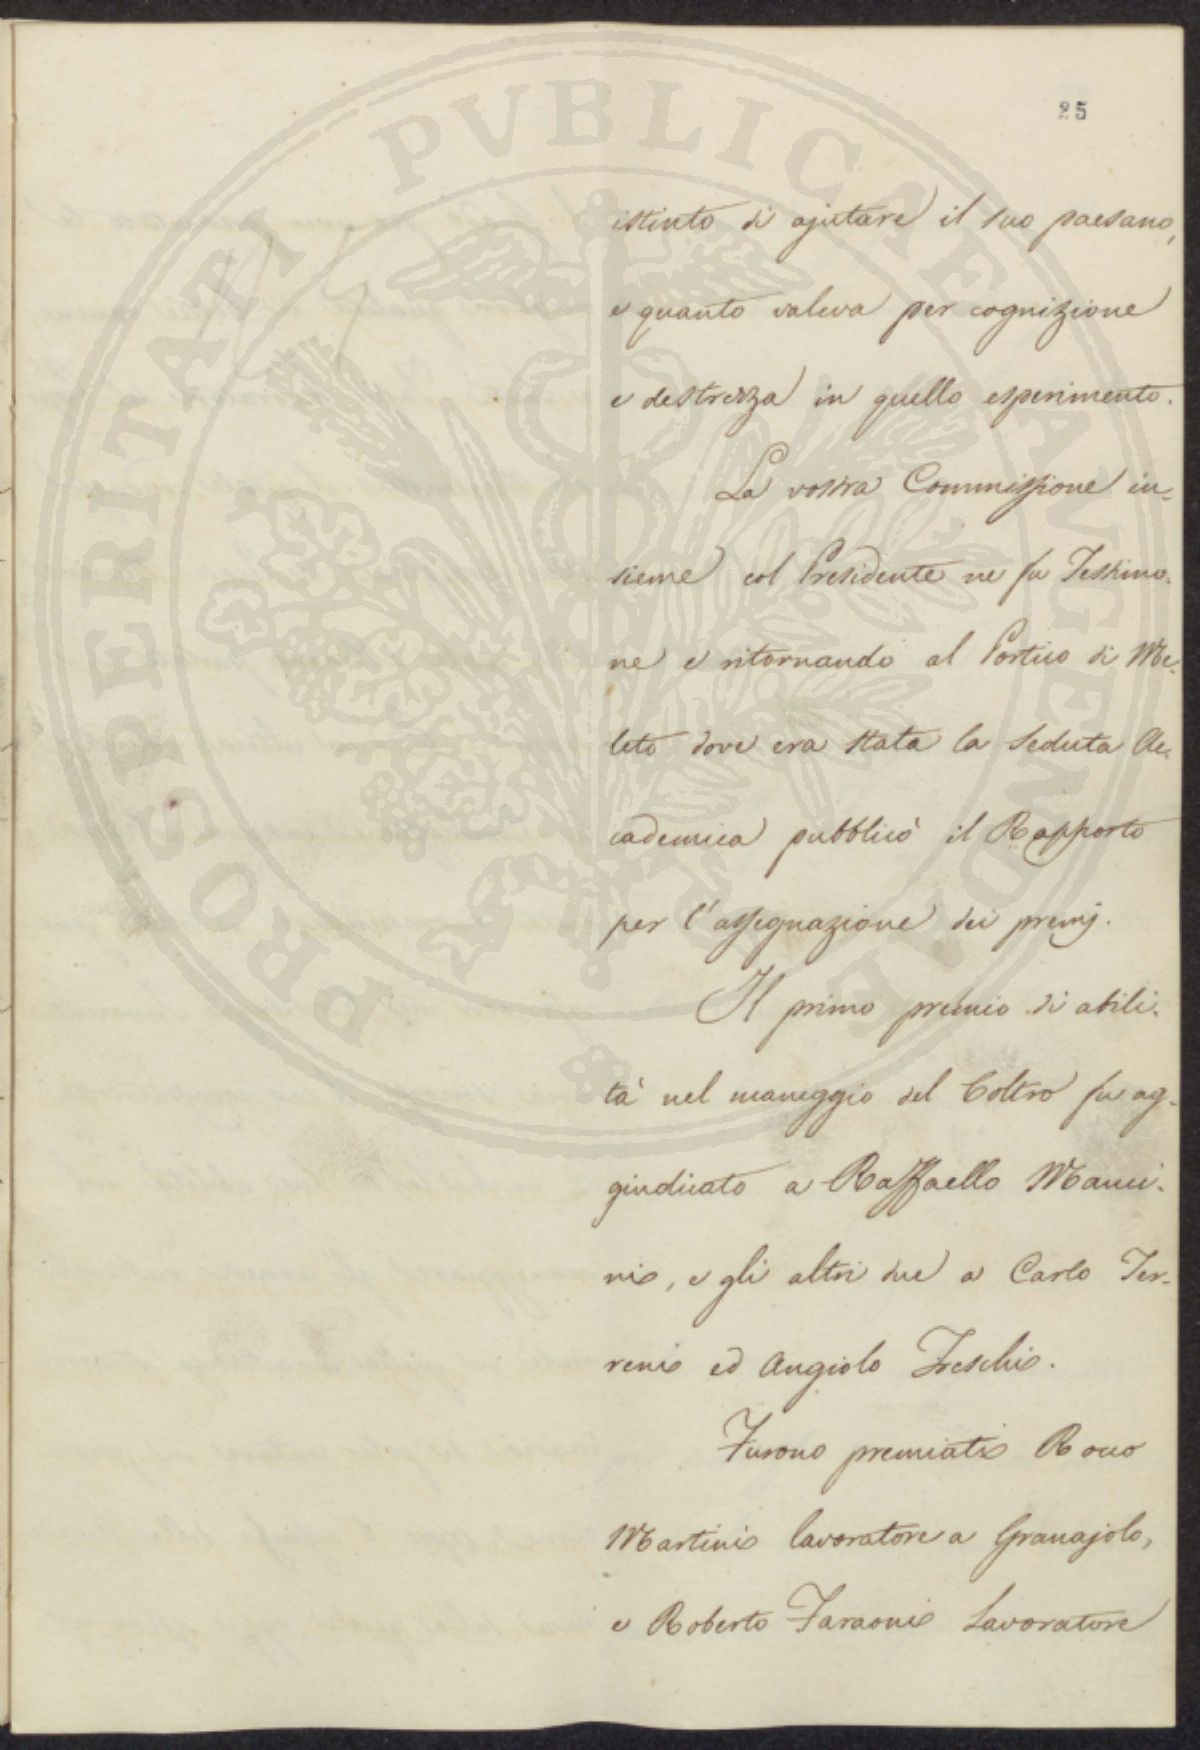 25
istinto di ajutare il suo paesano,
e quanto valeva per cognizione
e destrezza in quello esperimento.
La vostra Commissione in-
sieme col Presidente ne fu Testimo-
ne e ritornando al Portico di Me-
leto dove era stata la Seduta Ac-
cademica pubblicò il Rapporto
per l'assegnazione dei premj.
Il primo premio di abili-
tà nel maneggio del Coltro fu ag-
giudicato a Raffaello Manci-
ni, e gli altri due a Carlo Ter-
reni ed Angiolo Freschi.
Furono premiati Rocco
Martini lavoratore a Granajolo,
e Roberto Faraoni Lavoratore
PROSPERITATI PVBLICAE AVGENDAE